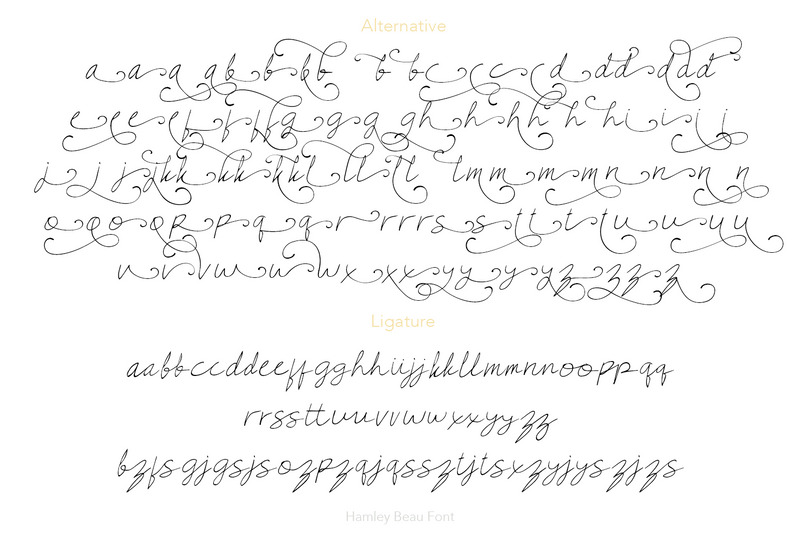 Alternative
a a a a b b b b b b c c c c d d d d d d
e e e e f f f f g g g g h h h h h h i i i i j
j j j j k k k k k k k l l l l l m m m m n n n n n
o o o o p p p q q r r r r s s t t t t u u u u
v v v w w w x x x y y y y z z z z
Ligature
aabbccddeeffgghhiijjkkllmmnnooppqq
rrssttuuvvwwxxyyzz
bzfsgjgsjsozpzqjqssztjtsxzyjyszjzs
Hamley Beau Font